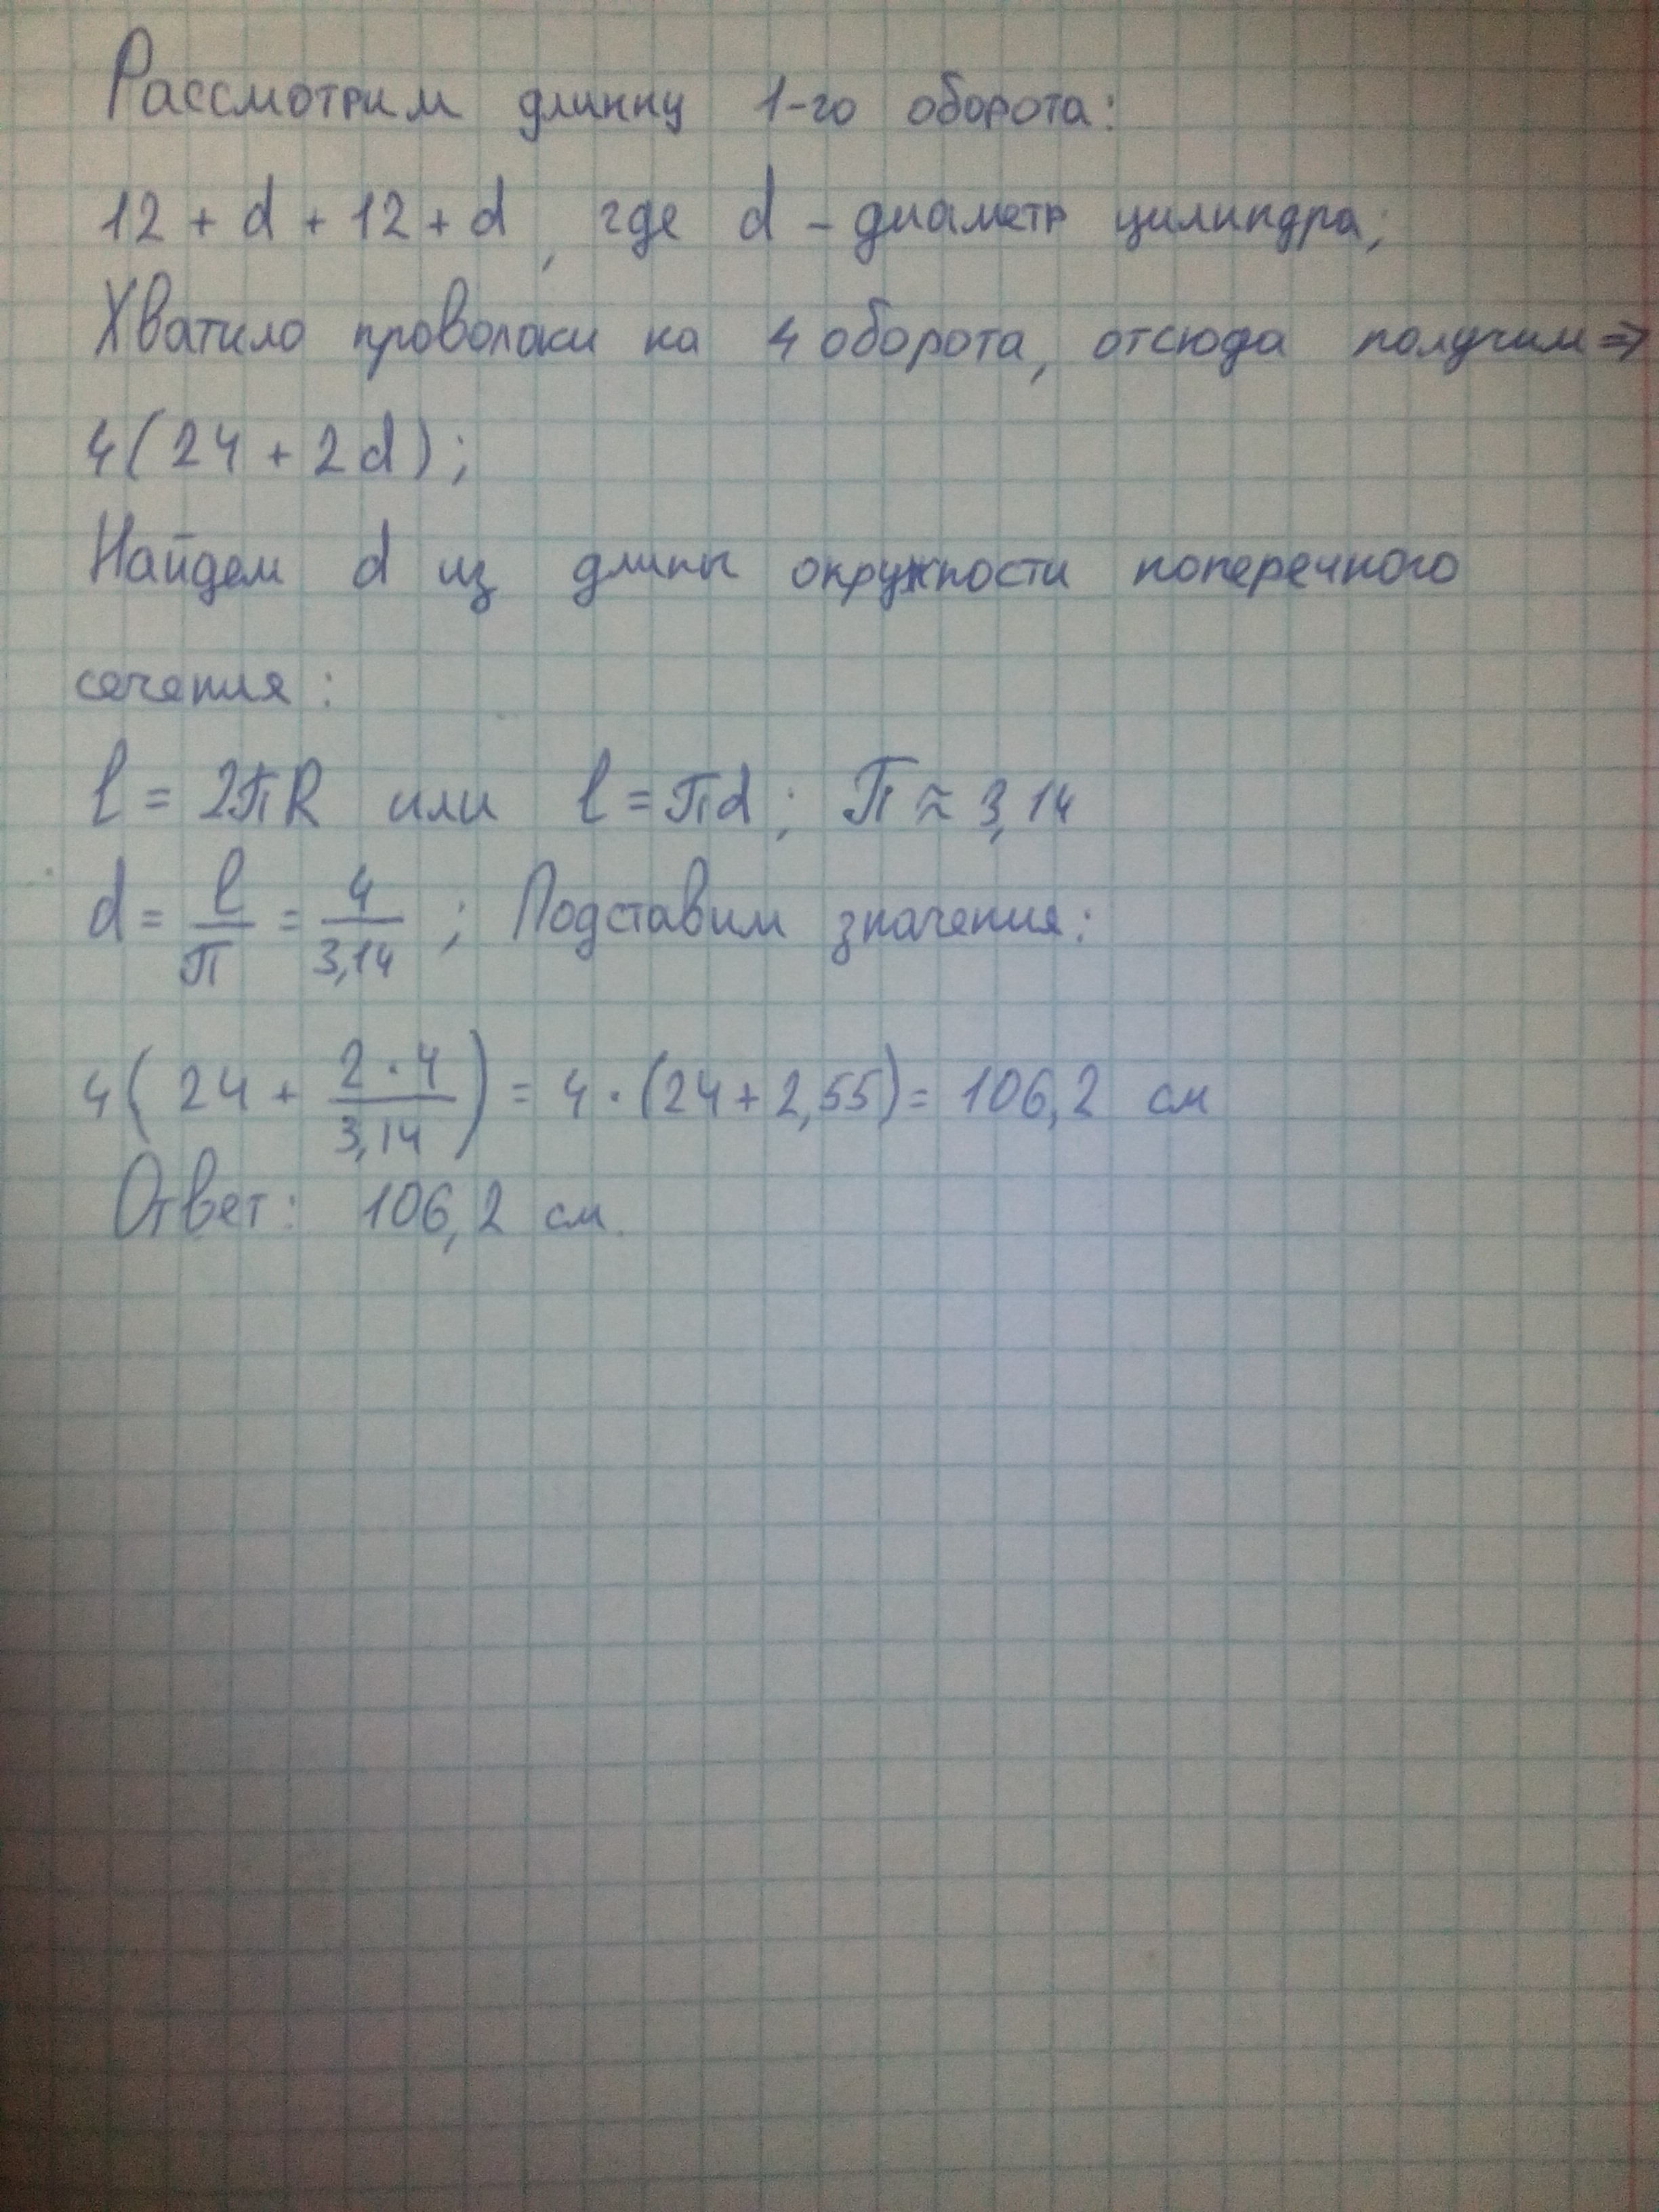 Рассмотрим длинну 1-го оборота:
12 + d + 12 + d, где d - диаметр цилиндра;
Хватило проволоки на 4 оборота, отсюда получим =>
4(24 + 2d);
Найдем d из длины окружности поперечного
сечения:
l = 2πR или l = πd; π ≈ 3,14
d = l/π = 4/3,14 ; Подставим значения:
4(24 + 2·4/3,14) = 4·(24 + 2,55) = 106,2 см
Ответ: 106,2 см.